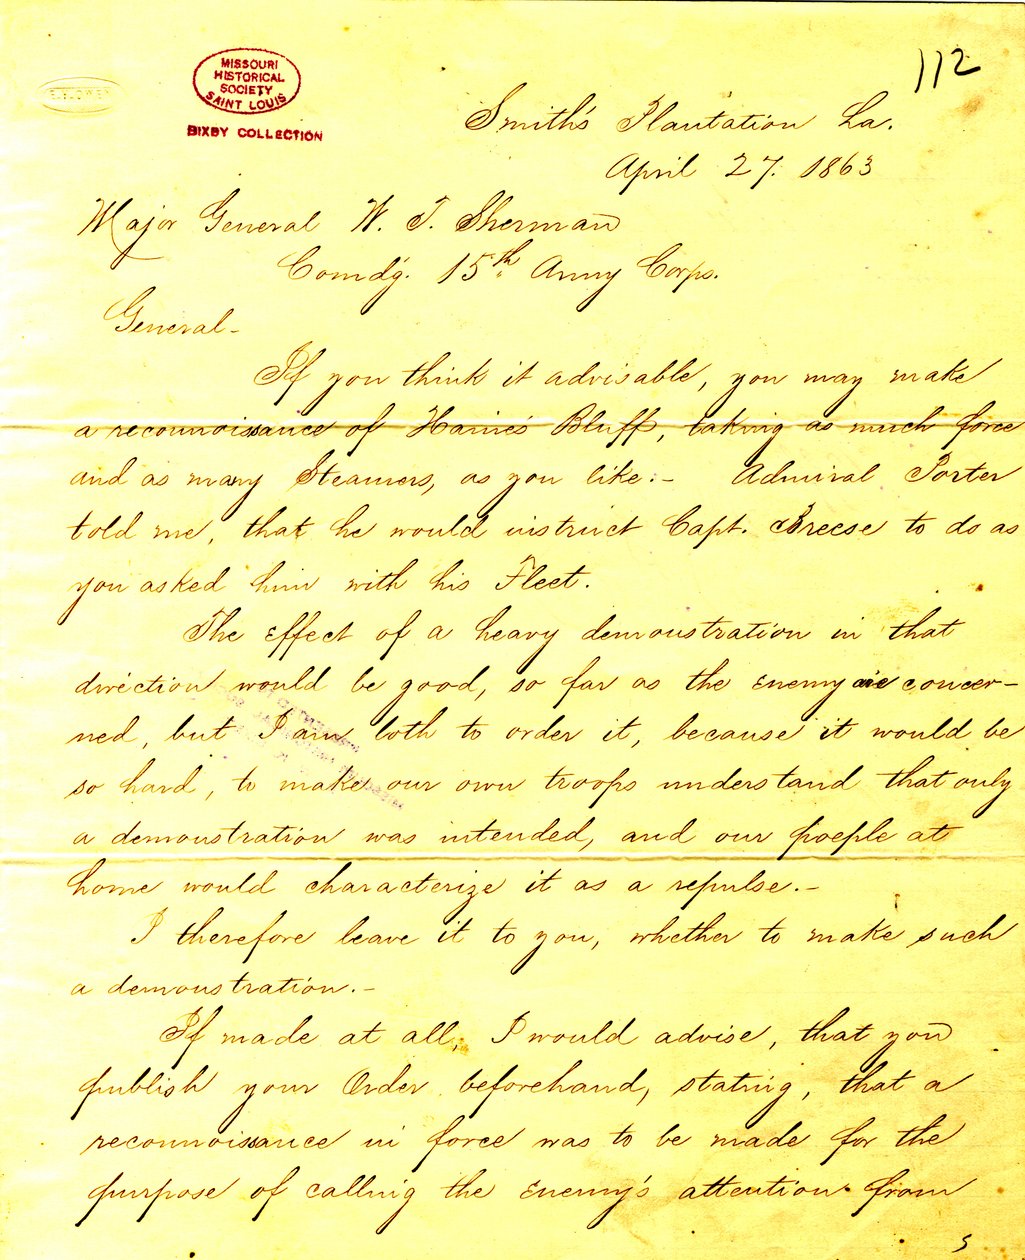 112
MISSOURI
HISTORICAL
SOCIETY
SAINT LOUIS
BIXBY COLLECTION
Smith's Plantation La.
April 27. 1863
Major General W. T. Sherman
Comdg. 15th Army Corps.
General-
If you think it advisable, you may make
a reconnoissance of Haines Bluff, taking as much force
and as many Steamers, as you like:- Admiral Porter
told me, that he would instruct Capt. Breese to do as
you asked him with his Fleet.
The effect of a heavy demonstration in that
direction would be good, so far as the Enemy are concer-
ned, but I am loth to order it, because it would be
so hard, to make our own troops understand that only
a demonstration was intended, and our poeple at
home would characterize it as a repulse.-
I therefore leave it to you, whether to make such
a demonstration.-
If made at all, I would advise, that you
publish your Order beforehand, stating, that a
reconnoissance in force was to be made for the
purpose of calling the Enemy's attention from